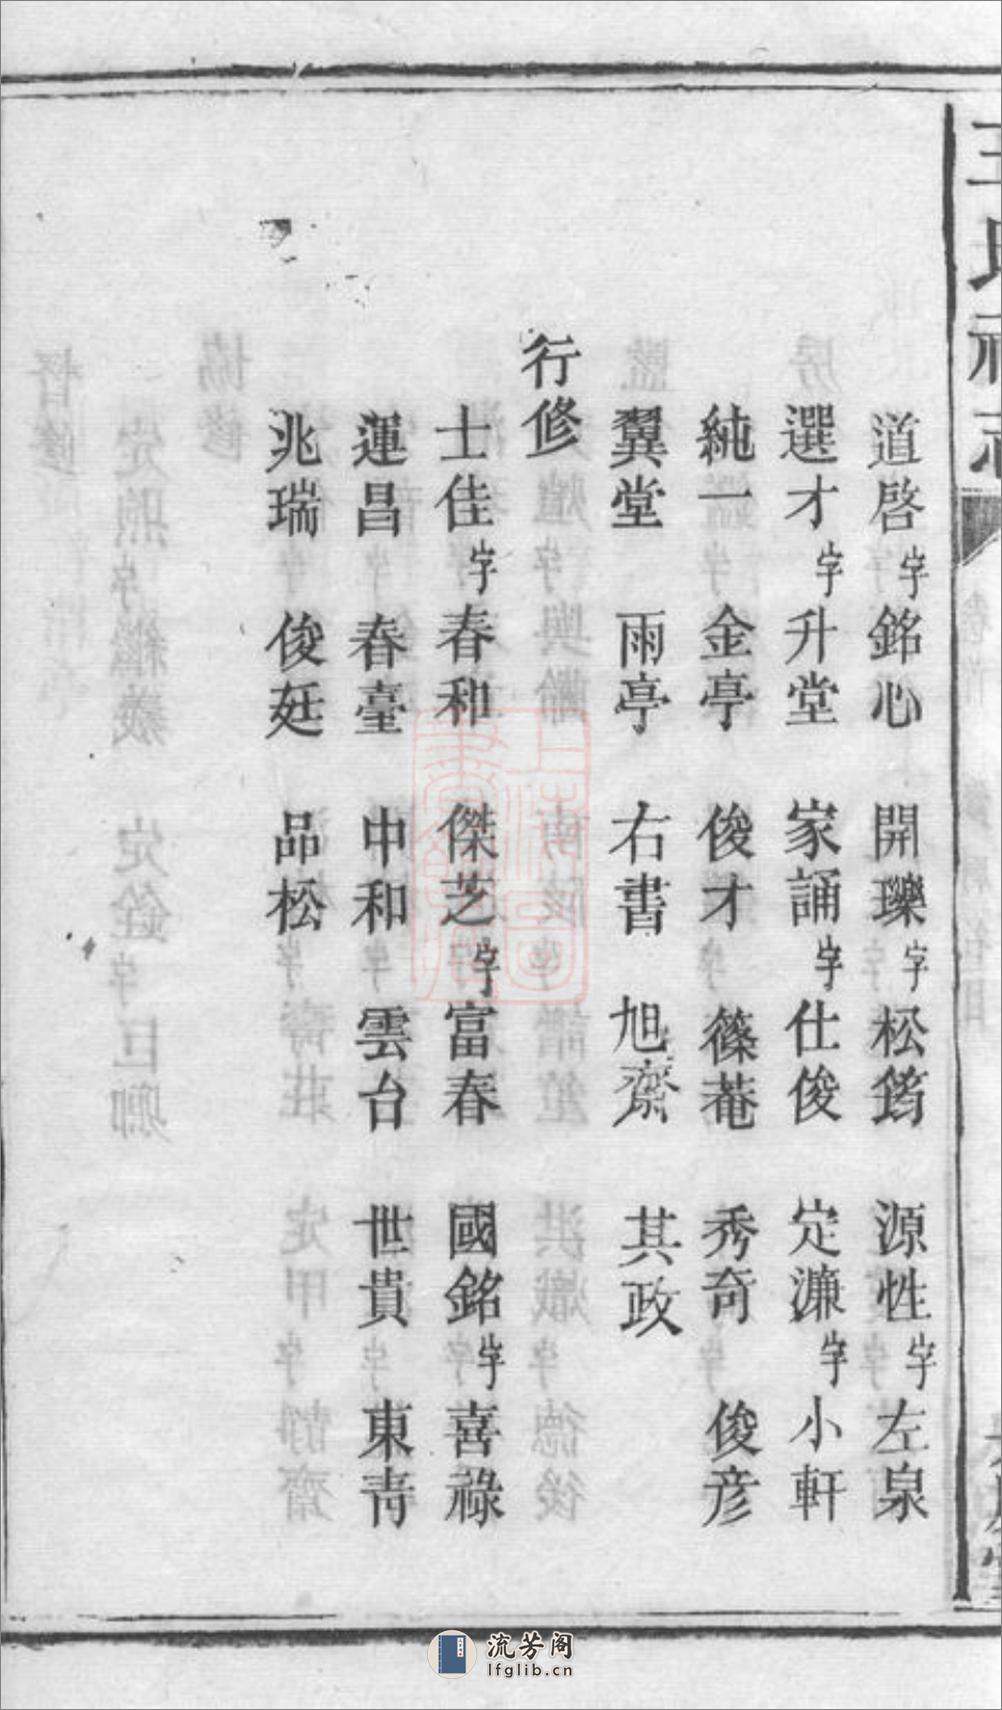 道啓字銘心 開瓅字松筠 源性字左泉
選才字升堂 家誦字仕俊 定濂字小軒
純一 金亭 俊才 篠菴 秀奇 俊彦
翼堂 雨亭 右書 旭齋 其政
行修
士佳字春和 傑芝字富春 國銘字喜祿
運昌 春臺 中和 雲台 世貴 東青
兆瑞 俊廷 品松
流芳阁
lfglib.cn